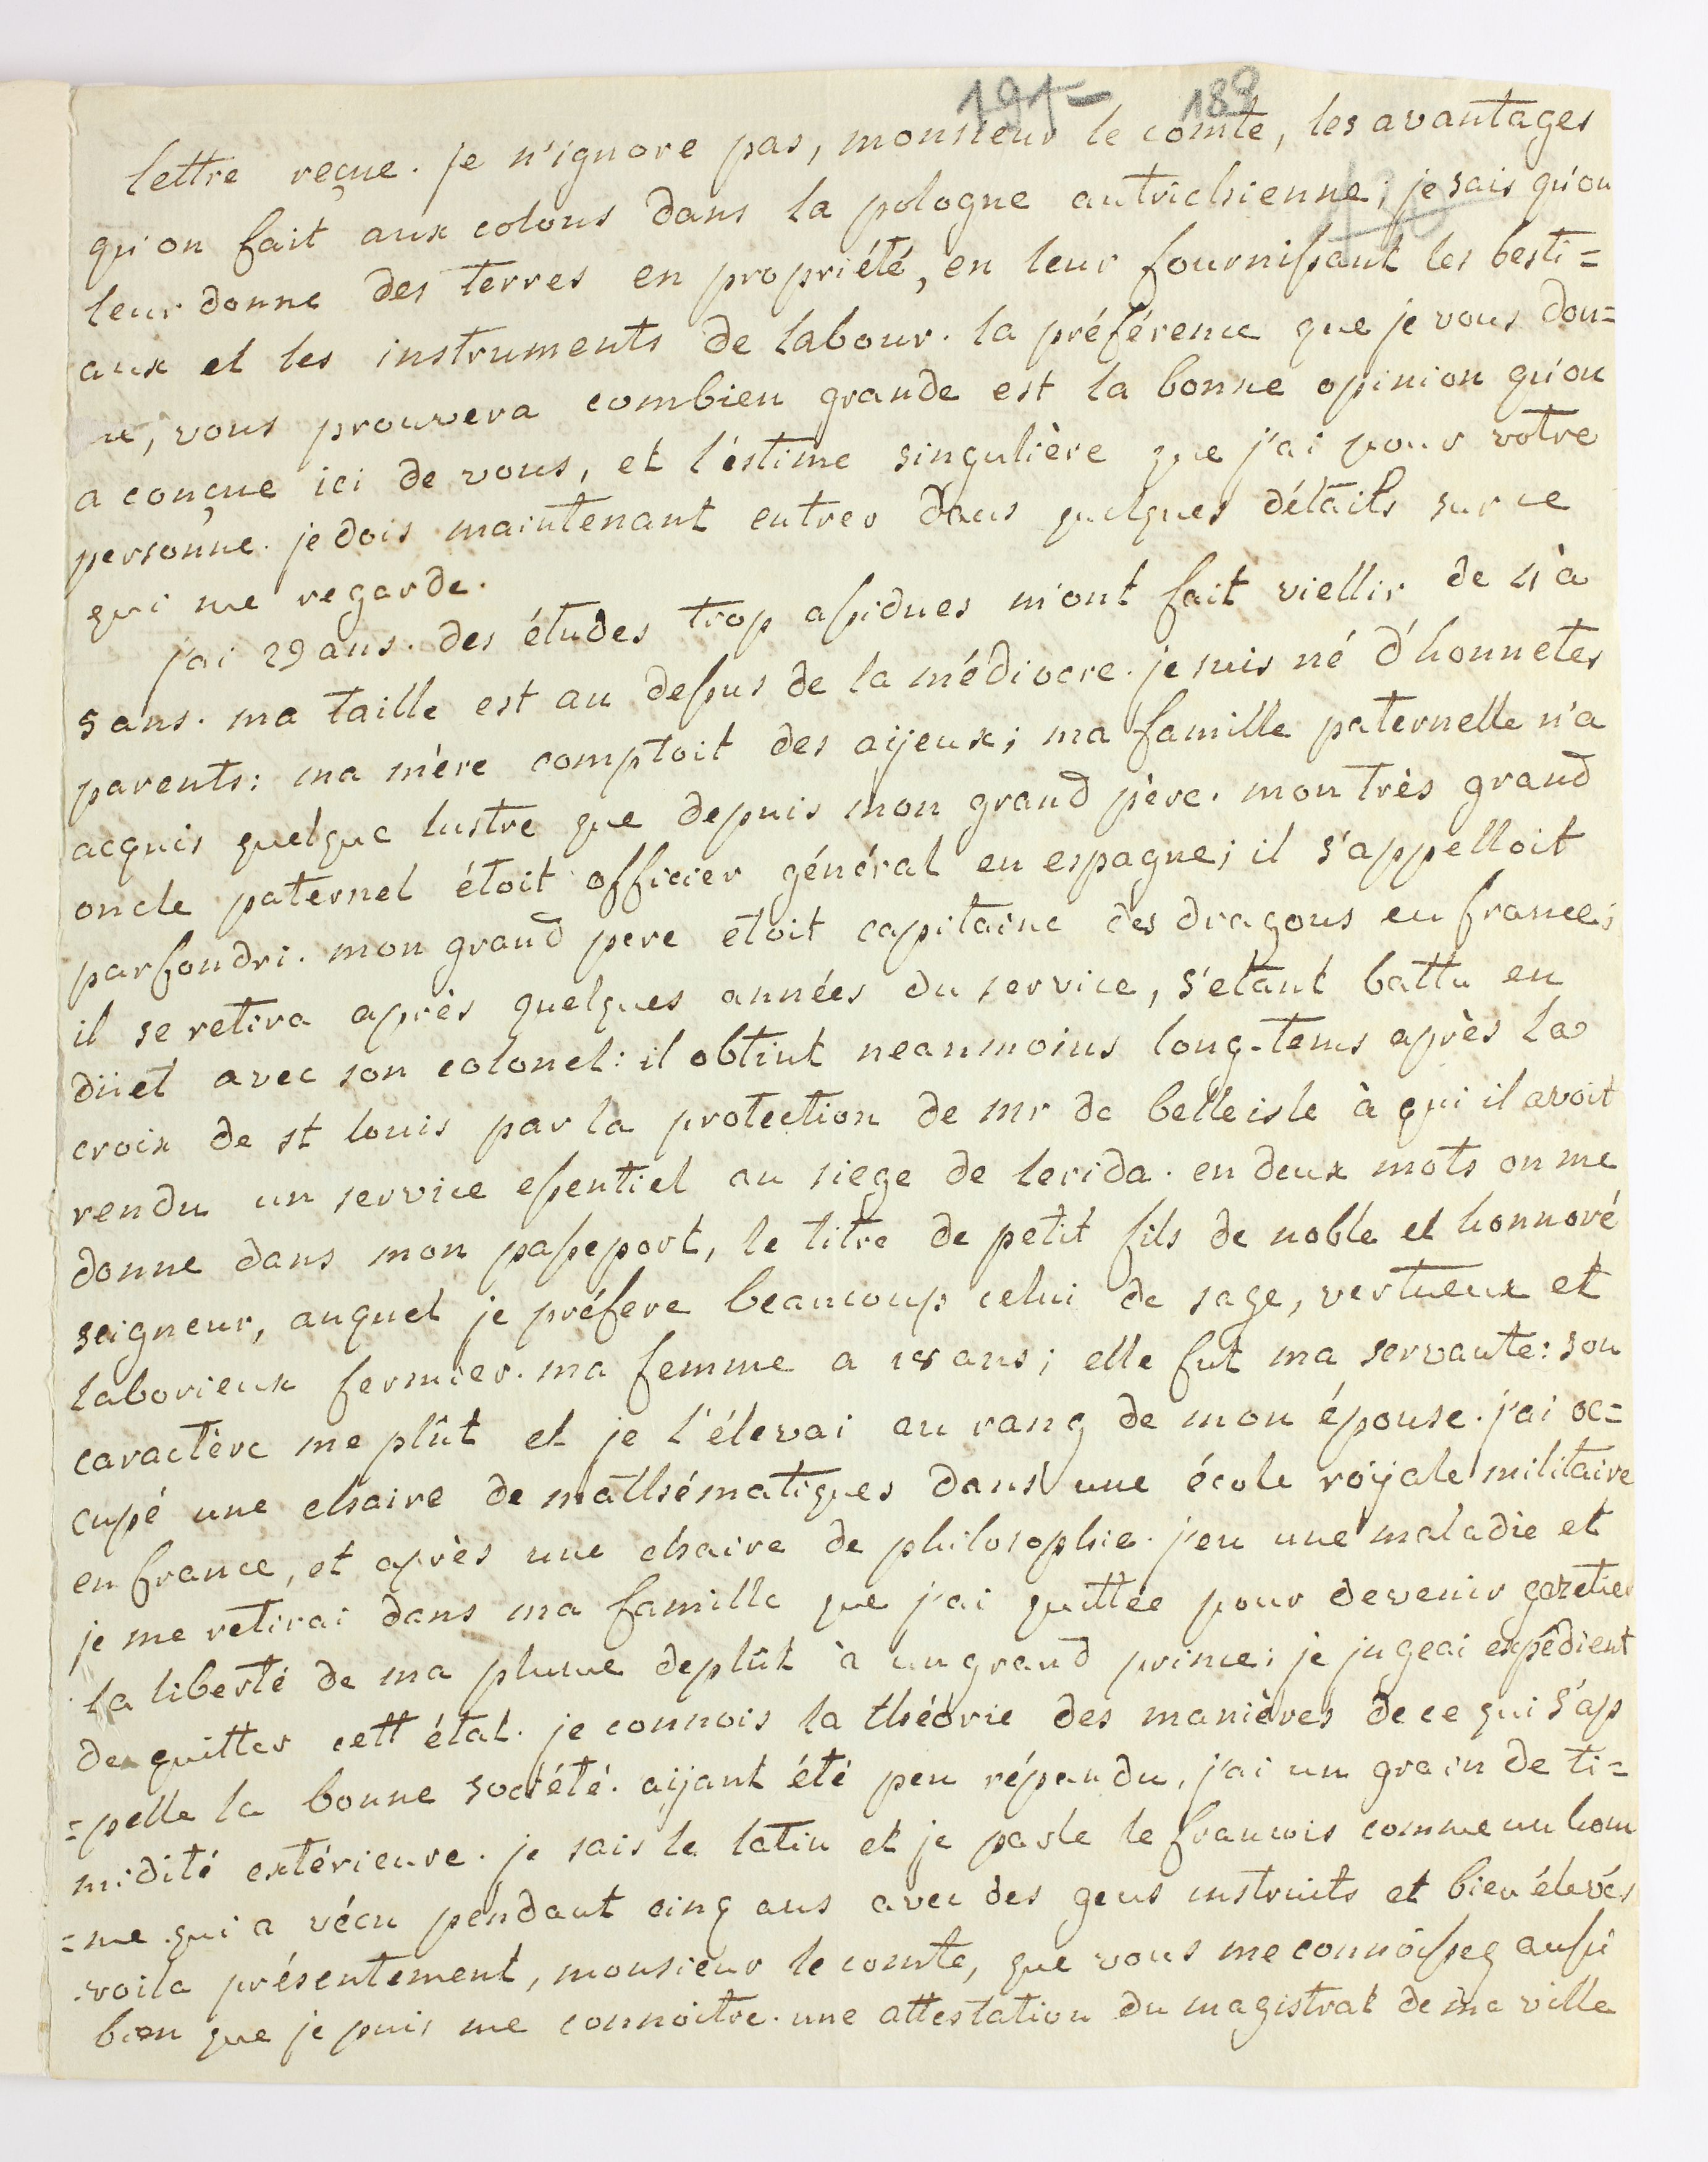 191- 189
lettre reçue. je n'ignore pas, monsieur le comte, les avantages
qu'on fait aux colons dans la pologne autrichienne; je sais qu'on
leur donne des terres en propriété, en leur fournissant les besti=
aux et les instruments de labour. la préférence que je vous don=
ne, vous prouvera combien grande est la bonne opinion qu'on
a conçue ici de vous, et l'éstime singulière que j'ai pour votre
personne. je dois maintenant entrer dans quelques détails sur ce
qui me regarde.
j'ai 29 ans. des études trop assidues m'ont fait viellir de 4 à
5 ans. ma taille est au dessus de la médiocre. je suis né d'honnetes
parents: ma mère comptoit des aijeux; ma famille paternelle n'a
acquis quelque lustre que depuis mon grand père. mon très grand
oncle paternel étoit officier général en espagne; il s'appelloit
parfondri. mon grand pere etoit capitaine des dragons en france;
il se retira après quelques années du service, s'etant battu en
düel avec son colonel: il obtint neanmoins long-tems après la
croix de st louis par la protection de mr de belleisle à qui il avoit
rendu un service essentiel au siege de lerida. en deux mots on me
donne dans mon passeport, le titre de petit fils de noble et honnoré
seigneur, auquel je préfere beaucoup celui de sage, vertueux et
laborieux fermier. ma femme a 18 ans; elle fut ma servante: son
caractère me plût et je l'élevai au rang de mon épouse. j'ai oc=
cupé une chaire de mathématiques dans une école roijale militaire
en france, et après une chaire de philosophie. j'eu une maladie et
je me retirai dans ma famille que j'ai quittée pour devenir gazetier
la liberté de ma plume deplût à un grand prince; je jugeai expédient
de quitter cett état. je connois la théorie des manières de ce qui s'ap
=pelle la bonne société. aijant été peu répandu, j'ai un grain de ti=
midité extérieure. je sais le latin et je parle le francois comme un hom
=me qui a vécu pendant cinq ans avec des gens instruits et bien élevés
.voila présentement, monsieur le comte, que vous me connoissez aussi
bien que je puis me connoitre. une attestation du magistrat de ma ville